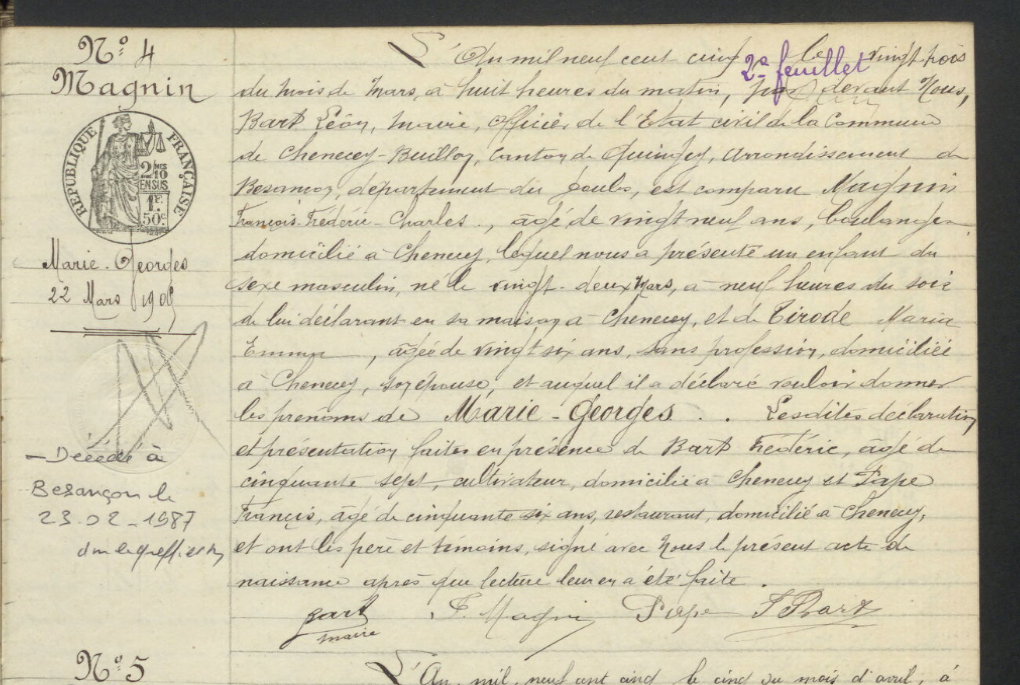 N° 4
Magnin
RÉPUBLIQUE FRANÇAISE
2/10
EN SUS
1F
50c
Marie-Georges
22 Mars 1905
Décédé à
Besançon le
23.02-1987
2e feuillet
L'An mil neuf cent cinq le vingt trois
du mois de Mars, à huit heures du matin, par devant Nous,
Bart Léon, Maire, Officier de l'Etat civil de la Commune
de Chenecey-Buillon, Canton de Quingey, Arrondissement de
Besançon, département du Doubs, est comparu Magnin
François-Frédéric-Charles, âgé de vingt neuf ans, boulanger
domicilié à Chenecey, lequel nous a présenté un enfant du
sexe masculin, né le vingt-deux Mars, à neuf heures du soir
de lui déclarant en sa maison à Chenecey, et de Tirode Maria
Emma, âgée de vingt six ans, sans profession, domiciliée
à Chenecey, son épouse, et auquel il a déclaré vouloir donner
les prénoms de Marie-Georges. Lesdites déclaration
et présentation faites en présence de Bart Frédéric, âgé de
cinquante sept, cultivateur, domicilié à Chenecey et Pape
François, âgé de cinquante six ans, restaurant, domicilié à Chenecey,
et ont les père et témoins, signé avec Nous le présent acte de
naissance après que lecture leur en a été faite.
Bart F. Magnin Pape F Bart
maire
N° 5
L'An, mil, neuf cent cinq le cinq du mois d'avril, à